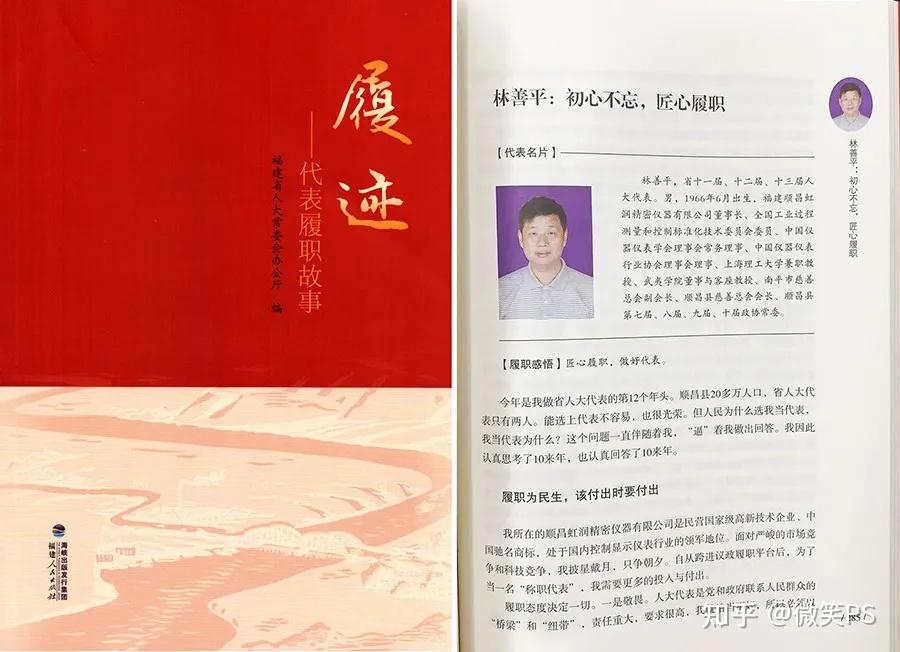 履迹
——代表履职故事
福建省人大常委会办公厅 编
海峡出版发行集团
福建人民出版社
林善平：初心不忘，匠心履职
【代表名片】
林善平，省十一届、十二届、十三届人
大代表。男，1966年6月出生，福建顺昌虹
润精密仪器有限公司董事长、全国工业过程
测量和控制标准化技术委员会委员、中国仪
器仪表学会理事会常务理事、中国仪器仪表
行业协会理事会理事、上海理工大学兼职教
授、武夷学院董事与客座教授、南平市慈善
总会副会长、顺昌县慈善总会会长、顺昌县
第七届、八届、九届、十届政协常委。
【履职感悟】匠心履职，做好代表。
今年是我做省人大代表的第12个年头。顺昌县20多万人口，省人大代
表只有两人。能选上代表不容易，也很光荣。但人民为什么选我当代表，
我当代表为什么？这个问题一直伴随着我，“逼”着我做出回答。我因此
认真思考了10来年，也认真回答了10来年。
履职为民生，该付出时要付出
我所在的顺昌虹润精密仪器有限公司是民营国家级高新技术企业、中
国驰名商标，处于国内控制显示仪表行业的领军地位。面对严峻的市场竞
争和科技竞争，我披星戴月，只争朝夕。自从跨进议政履职平台后，为了
当一名“称职代表”，我需要更多的投入与付出。
履职态度决定一切。一是敬畏。人大代表是党和政府联系人民群众的
“桥梁”和“纽带”，责任重大，要求很高，我
林善平：初心不忘，匠心履职
/ 285 /
知乎 @微笑PS